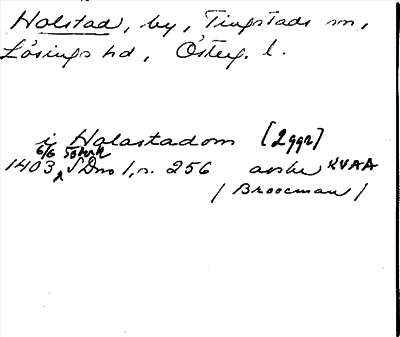 Halstad, by, Tingstads sn,
Lösings hd, Österg. l.
i Halastadom [2ggr]
1403 6/6 SDns 1, n. 256 avskr KVAA
/ Broocman /